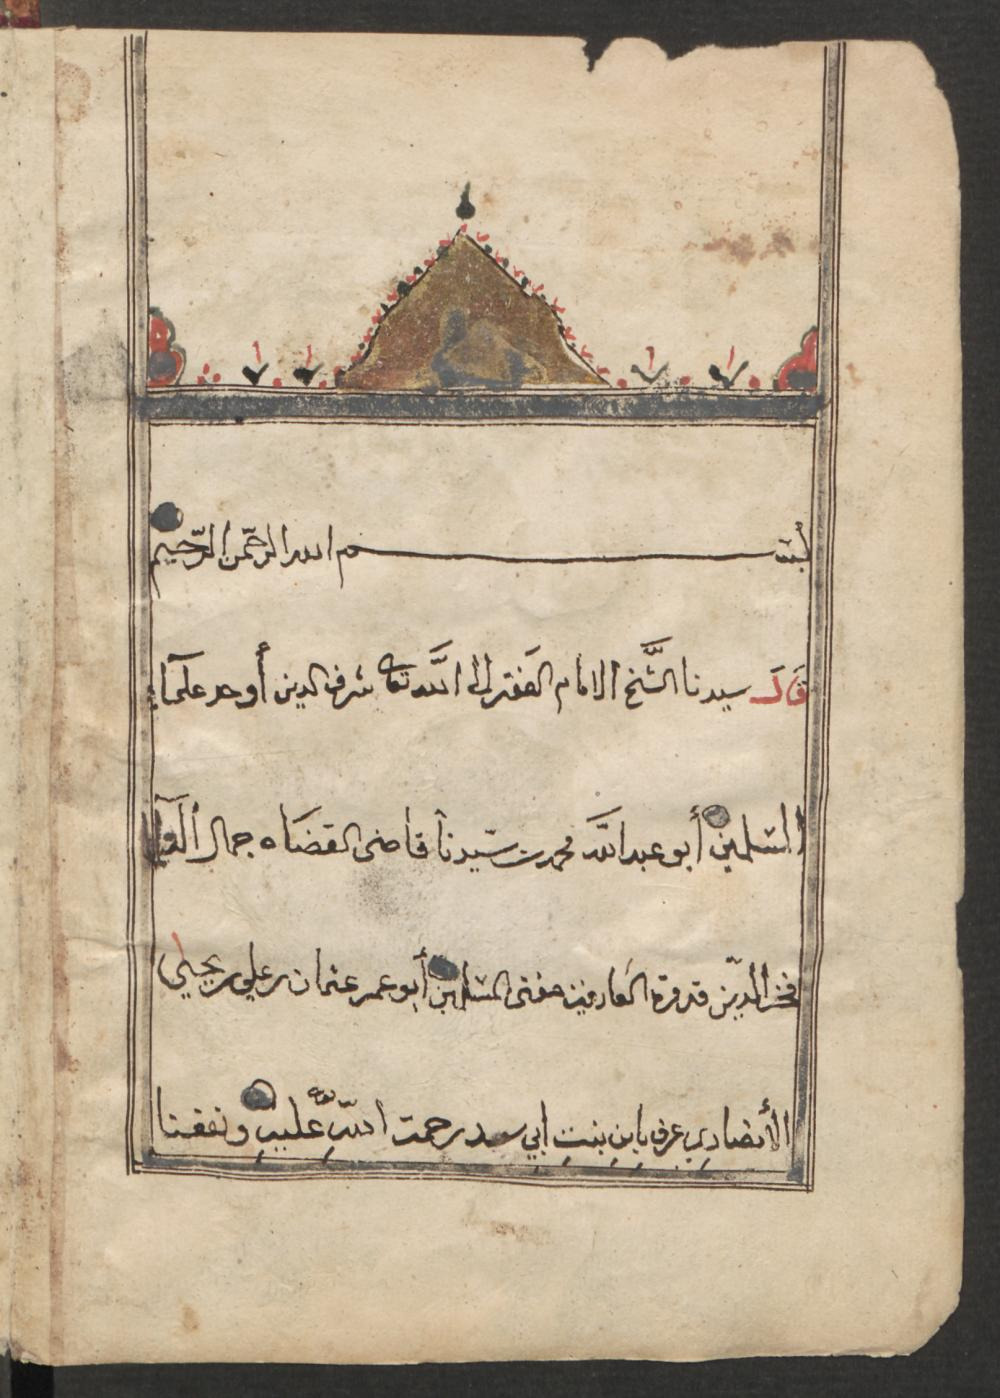 بسم الله الرحمن الرحيم
قال سيدنا الشيخ الامام الفقير الى الله تعالى شرف الدين أوحد علماء
المسلمين أبو عبد الله محمد بن سيدنا قاضى القضاه جمال
فخر الدين قدوة العارفين مفتى المسلمين أبو عمر عثمان بن علي بن يحيى
الأنصاري عرف بابن بنت أبي سعد رحمت الله تعالى عليه ونفعنا